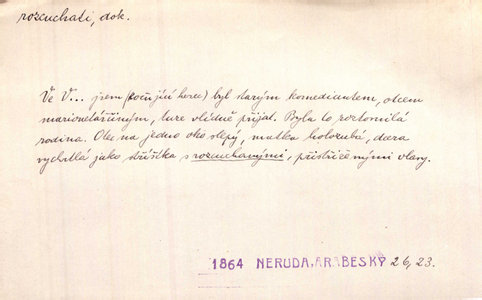 rozcuchati, dok.
Ve V... jsem (kočující herec) byl starým komediantem, otcem
marionetářčiným, tuze vlídně přijat. Byla to roztomilá
rodina. Otec na jedno oko slepý, matka holozubá, dcera
vychrtlá jako stříška s rozcuchanými, přistřiženými vlasy.
1864 NERUDA, ARABESKY 26, 23.